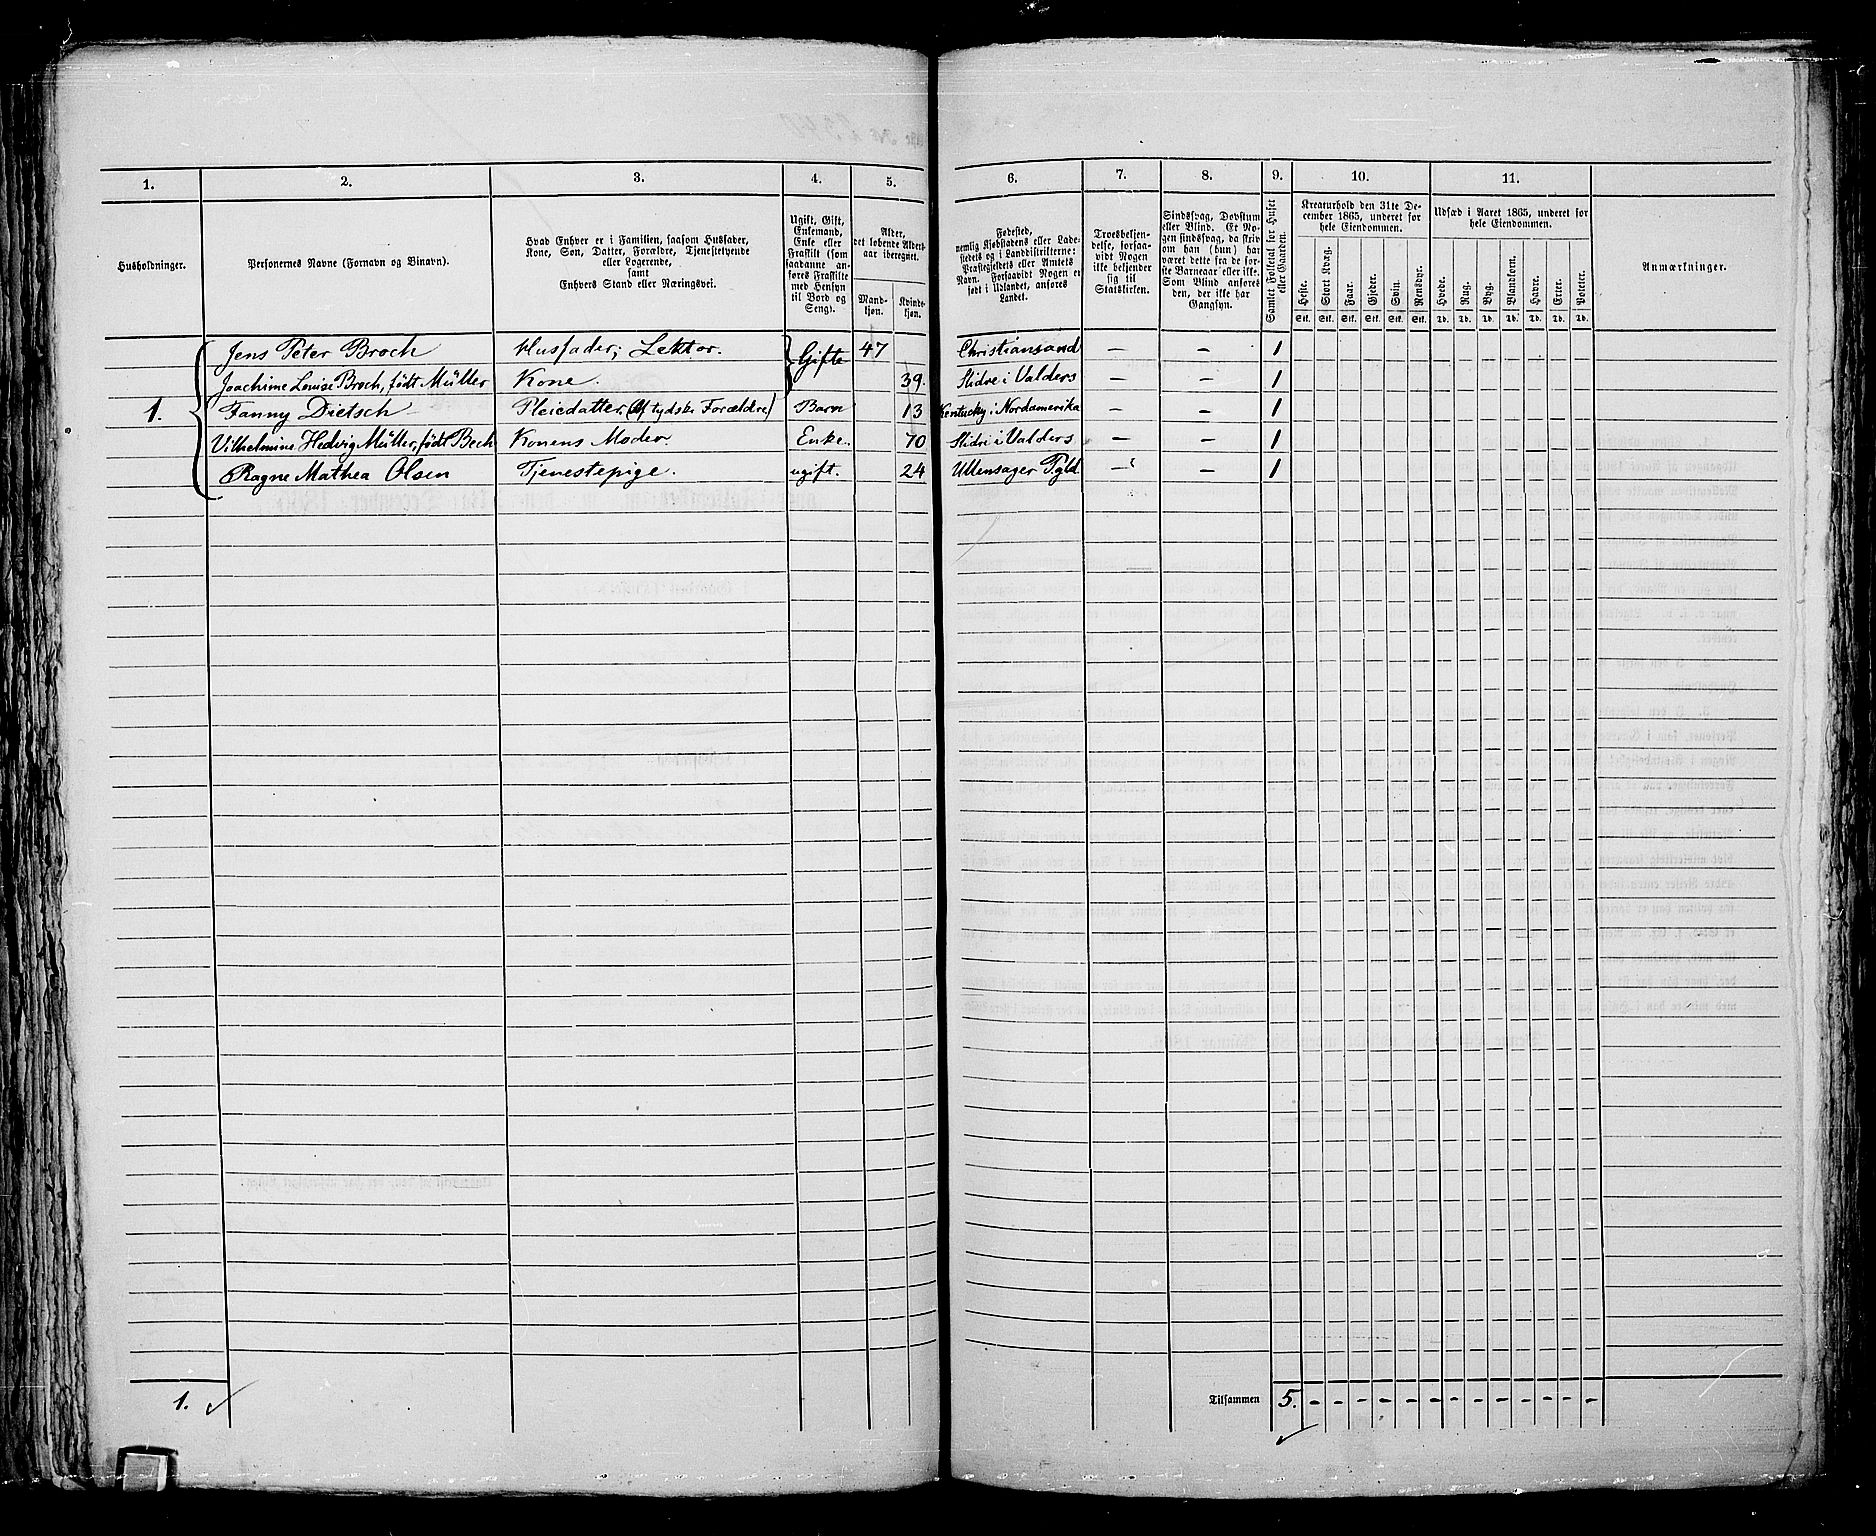 1.
2.
3.
4.
5.
6.
7.
8.
9.
10.
11.
Husholdninger.
Personernes Navne (Fornavn og Binavn).
Hvad Enhver er i Familien, saasom Husfader,
Kone, Søn, Datter, Forældre, Tjenestetyende
eller Logerende,
samt
Enhvers Stand eller Næringsvei.
Ugift, Gift,
Enkemand,
Enke eller
Fraskilt (som
saadanne an-
føres Fraskilte
med Hensyn
til Bord og
Seng).
Alder,
det løbende Alders-
aar iberegnet.
Mand-
kjøn.
Kvinde-
kjøn.
Fødested,
nemlig Kjøbstadens eller Lade-
stedets og i Landdistrikterne:
Præstegjeldets eller Amtets
Navn. Forsaavidt Nogen er
født i Udlandet, anføres
Landet.
Troesbekjen-
delse, forsaa-
vidt Nogen
ikke bekjender
sig til
Statskirken.
Sindssvag, Døvstum
eller Blind. Er No-
gen sindssvag, da skriv
om han (hun) har
været dette fra de før-
ste Barneaar eller ikke.
Som Blind anføres
den, der ikke har
Gangsyn.
Samlet Folketal for Huset
eller Gaarden.
Kreaturhold den 31te De-
cember 1865, underet for
hele Eiendommen.
Heste.
Stort Kvæg.
Faar.
Gjeder.
Svin.
Rensdyr.
Stk. Stk. Stk. Stk. Stk. Stk.
Udsæd i Aaret 1865, underet for
hele Eiendommen.
Hvede.
Rug.
Byg.
Blandkorn.
Havre.
Erter.
Poteter.
Td. Td. Td. Td. Td. Td. Td.
Anmærkninger.
Jens Peter Broch Husfader; Lektor. Gifte 47 Christiansand — — 1
Joachime Louise Broch, født Müller Kone. 39. Slidre i Valders — — 1
1. Fanny Dietsch Pleiedatter (af tydske Forældre) Barn 13 Kentucky i Nordamerika — — 1
Vilhelmine Hedvig Müller, født Bech Konens Moder. Enke. 70 Slidre i Valders — — 1
Ragne Mathea Olsen Tjenestepige. ugift. 24 Ullensager Pgld — — 1
1. Tilsammen 5. - - - - - - - - - - - - -